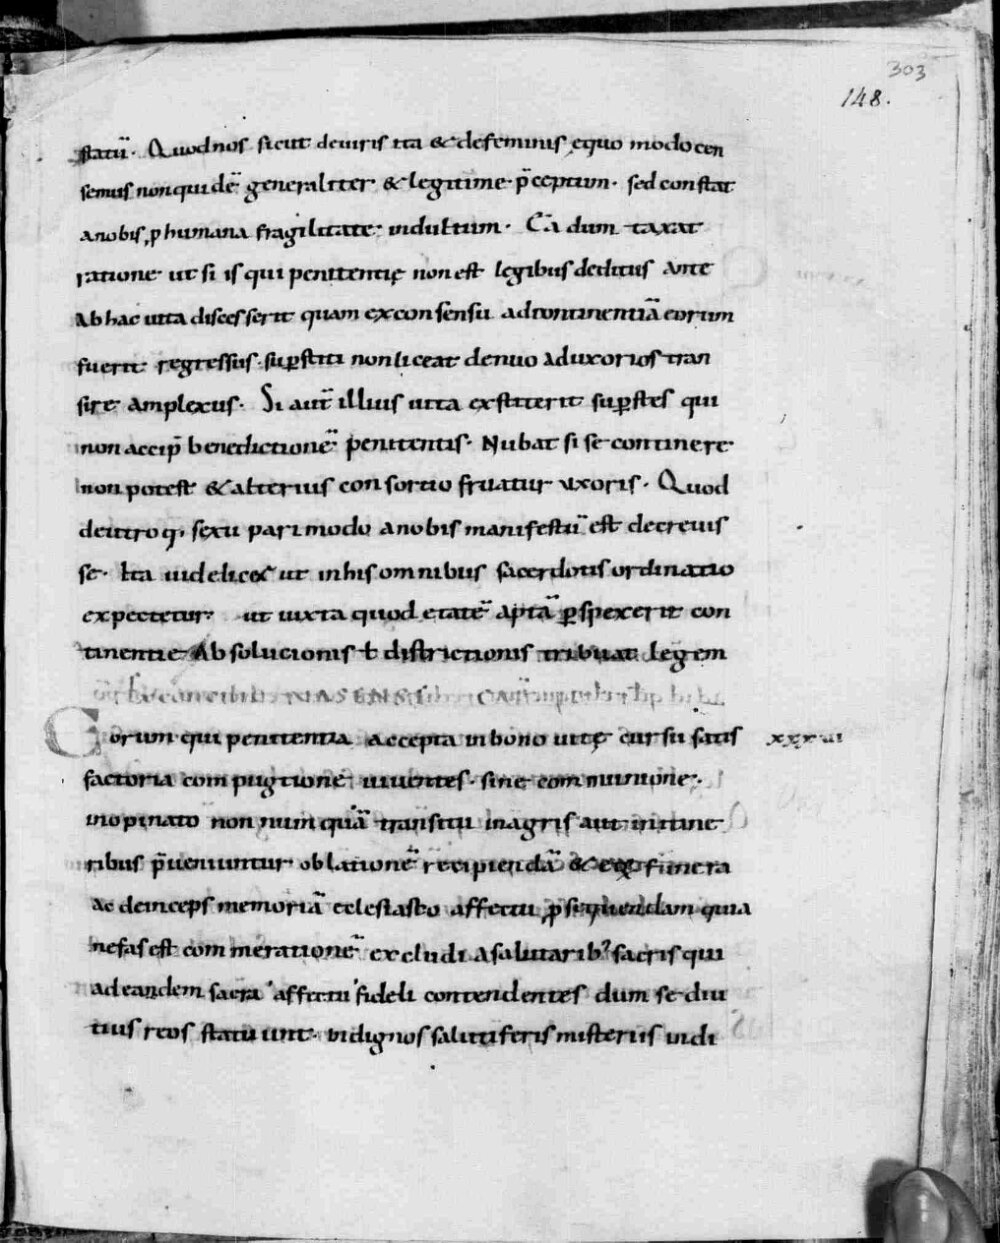 303
148.
statū. Quod nos sicut de uiris ita & de feminis equo modo cen
semus non quidē generaliter & legitime p̄ceptum. sed constat
a nobis ꝓ humana fragilitate indultum. Ea dum taxat
ratione ut si is qui penitentię non est legibus deditus ante
ab hac uita discesserit quam ex consensu ad continentiā eorum
fuerit regressus. suꝑstiti non liceat denuo ad uxorios tran
sire amplexus. Si aut̄ illius uita exstiterit suꝑstes qui
non accip̄ benedictionē penitentis. Nubat si se continere
non potest & alterius consortio fruatur uxoris. Quod
de utroq. sexu pari modo a nobis manifestū est decreuis
se. Ita uidelicet ut in his omnibus sacerdotis ordinatio
expectetur. ut iuxta quod etatē aptā ꝑspexerit con
tinentie absolucionis ł districtionis tribuat legem
Eorum qui penitentia accepta in bono uitę cursu satis xxxvi
factoria compugtionē uiuentes. sine communione.
inopinato non numquā transitu in agris aut itine
ribus p̄ueniuntur oblationē recipiendā & funera
ac deinceps memoriā eclesiastico affectu ꝓsequendam quia
nefas est commerationē excludi a salutarib' sacris qui
ad eandem sacra affectu fideli contendentes dum se diu
tius reos statuunt. indignos salutiferis misteriis iudi